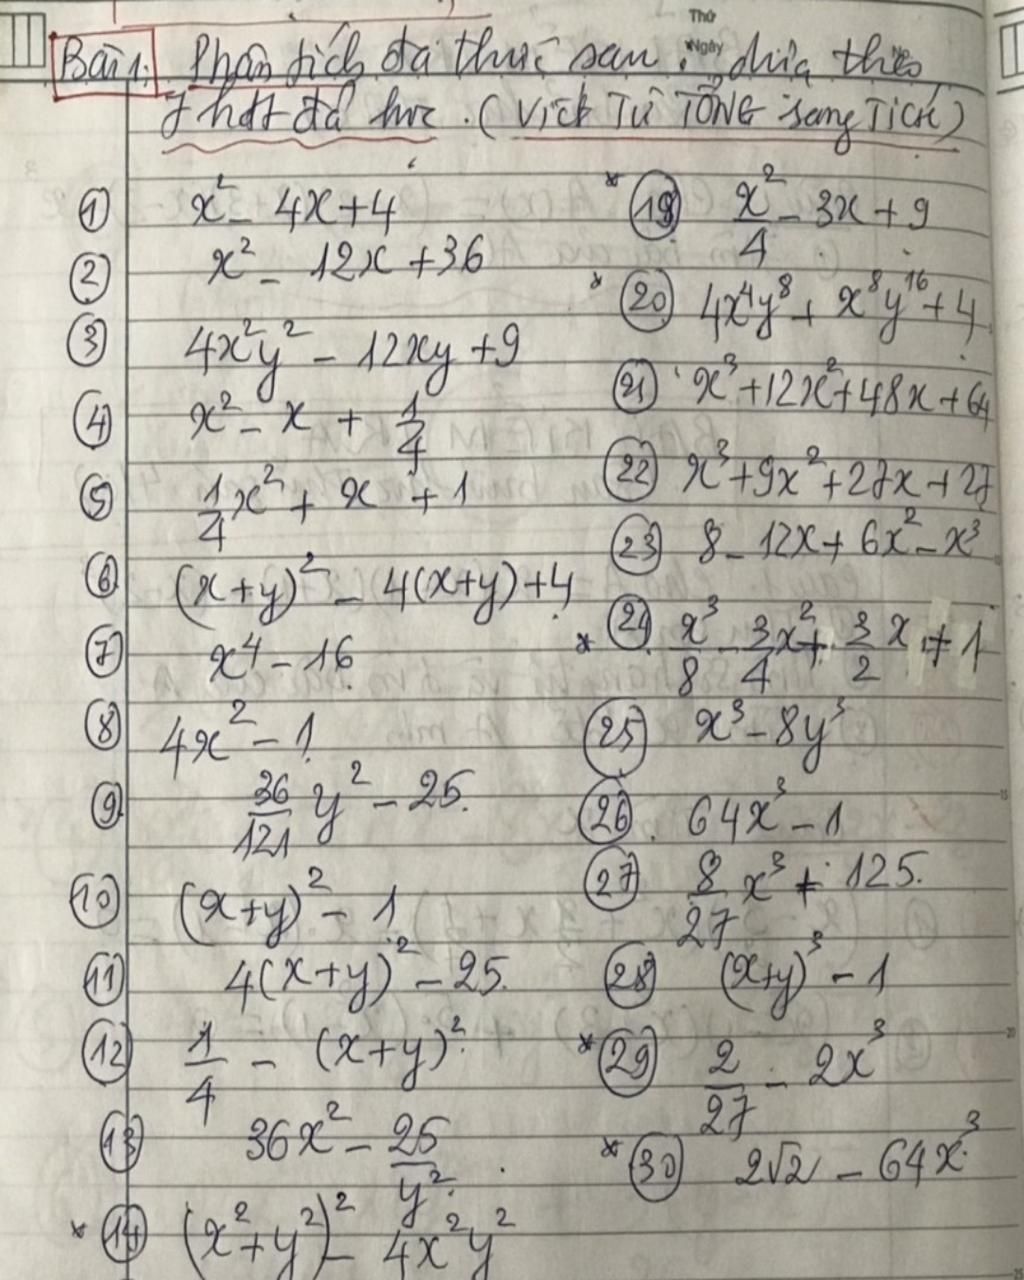 Thứ
Ngày
Bài 1: Phân tích đa thức sau, dựa theo
7 hđt đã học. (Viết TỪ TỔNG sang TÍCH)
① x² - 4x + 4
② x² - 12x + 36
③ 4x²y² - 12xy + 9
④ x² - x + 1/4
⑤ 1/4 x² + x + 1
⑥ (x+y)² - 4(x+y) + 4
⑦ x⁴ - 16
⑧ 4x² - 1
⑨ 36/121 y² - 25
⑩ (x+y)² - 1
⑪ 4(x+y)² - 25
⑫ 1/4 - (x+y)²
⑬ 36x² - 25/y²
* ⑭ (x²+y²)² - 4x²y²
* ⑲ x²/4 - 3x + 9
* ⑳ 4x⁴y⁸ + x⁸y¹⁶ + 4
㉑ x³ + 12x² + 48x + 64
㉒ x³ + 9x² + 27x + 27
㉓ 8 - 12x + 6x² - x³
* ㉔ x³/8 - 3/4 x² + 3/2 x + 1
㉕ x³ - 8y³
㉖ 64x³ - 1
㉗ 8/27 x³ + 125
㉘ (x+y)³ - 1
* ㉙ 2/27 - 2x³
* ㉚ 2√2 - 64x³